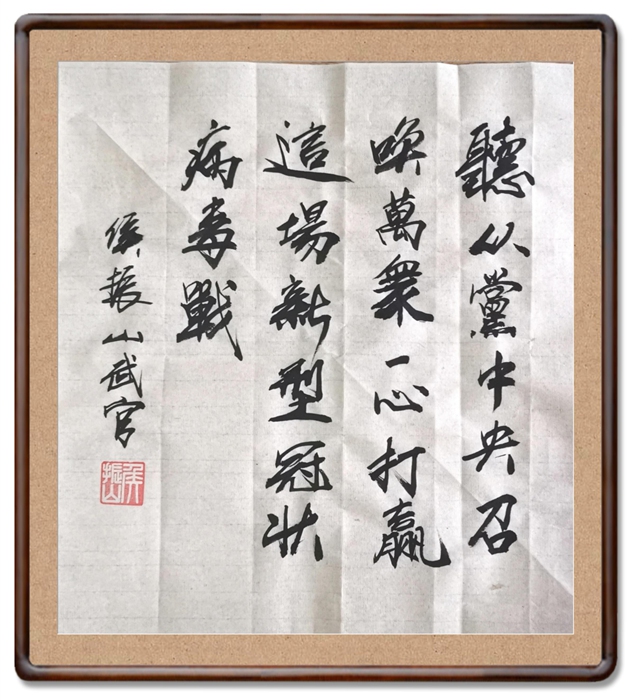 聽从黨中央召
喚萬衆一心打贏
這場新型冠狀
病毒戰
侯振山武官
侯振山